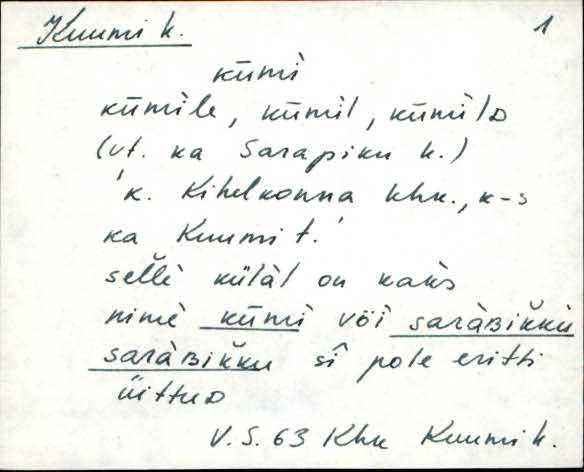 Kuumi k. 1
kūmì
kūmìle, kūmìl, kūmìlᴅ
(vt. ka Sarapiku k.)
'k. Kihelkonna khk., k-s
ka Kuumi t.'
sellè külàl on kaks
nimè kūmì või saràʙiǩkù
saràʙiǩku sî pole eritti
üittuᴅ
V.S. 63 Khk Kuumi k.